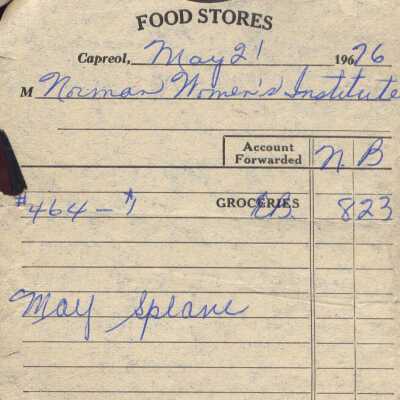 FOOD STORES
Capreol, May 21 196 76
M Norman Women's Institute
Account Forwarded N. B
#464 - GROCERIES 823
May Splane